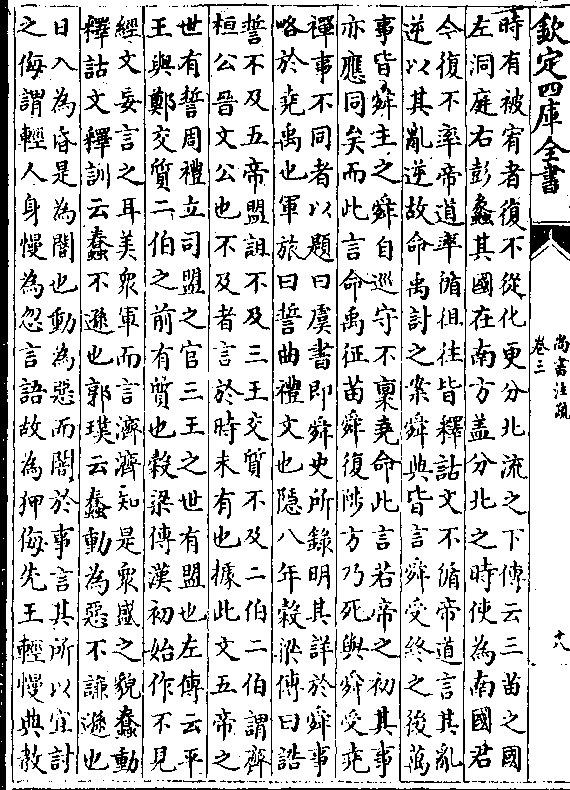 欽定四庫全書
尚書注疏
卷三
十八
時有被宥者復不從化更分北流之下傳云三苗之國
左洞庭右彭蠡其國在南方蓋分北之時使為南國君
今復不率帝道率循徂往皆釋詁文不循帝道言其亂
逆以其亂逆故命禹討之案舜典皆言舜受終之後萬
事皆舜主之舜自巡守不稟堯命此言若帝之初其事
亦應同矣而此言命禹征苗舜復陟方乃死與舜受堯
禪事不同者以題曰虞書即舜史所錄明其詳於舜事
略於堯禹也軍旅曰誓曲禮文也隱八年穀梁傳曰誥
誓不及五帝盟詛不及三王交質不及二伯二伯謂齊
桓公晉文公也不及者言於時未有也據此文五帝之
世有誓周禮立司盟之官三王之世有盟也左傳云平
王與鄭交質二伯之前有質也穀梁傳漢初始作不見
經文妄言之耳美衆軍而言濟濟知是衆盛之貌蠢動
釋詁文釋訓云蠢不遜也郭璞云蠢動為惡不謙遜也
日入為昏是為闇也動為惡而闇於事言其所以宜討
之侮謂輕人身慢為忽言語故為狎侮先王輕慢典教